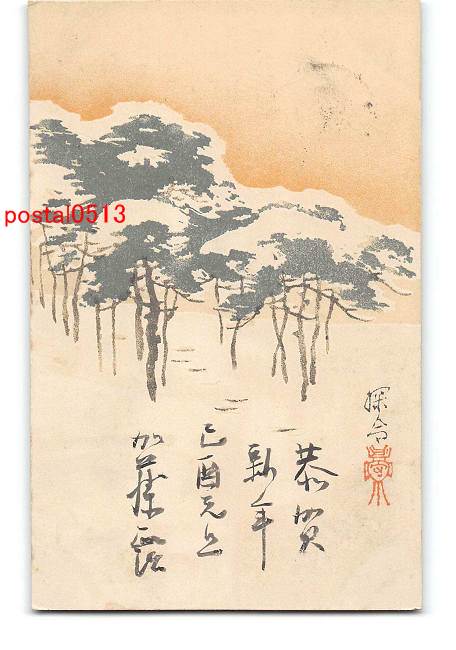 postal0513
恭賀
新年
己酉元旦
加藤